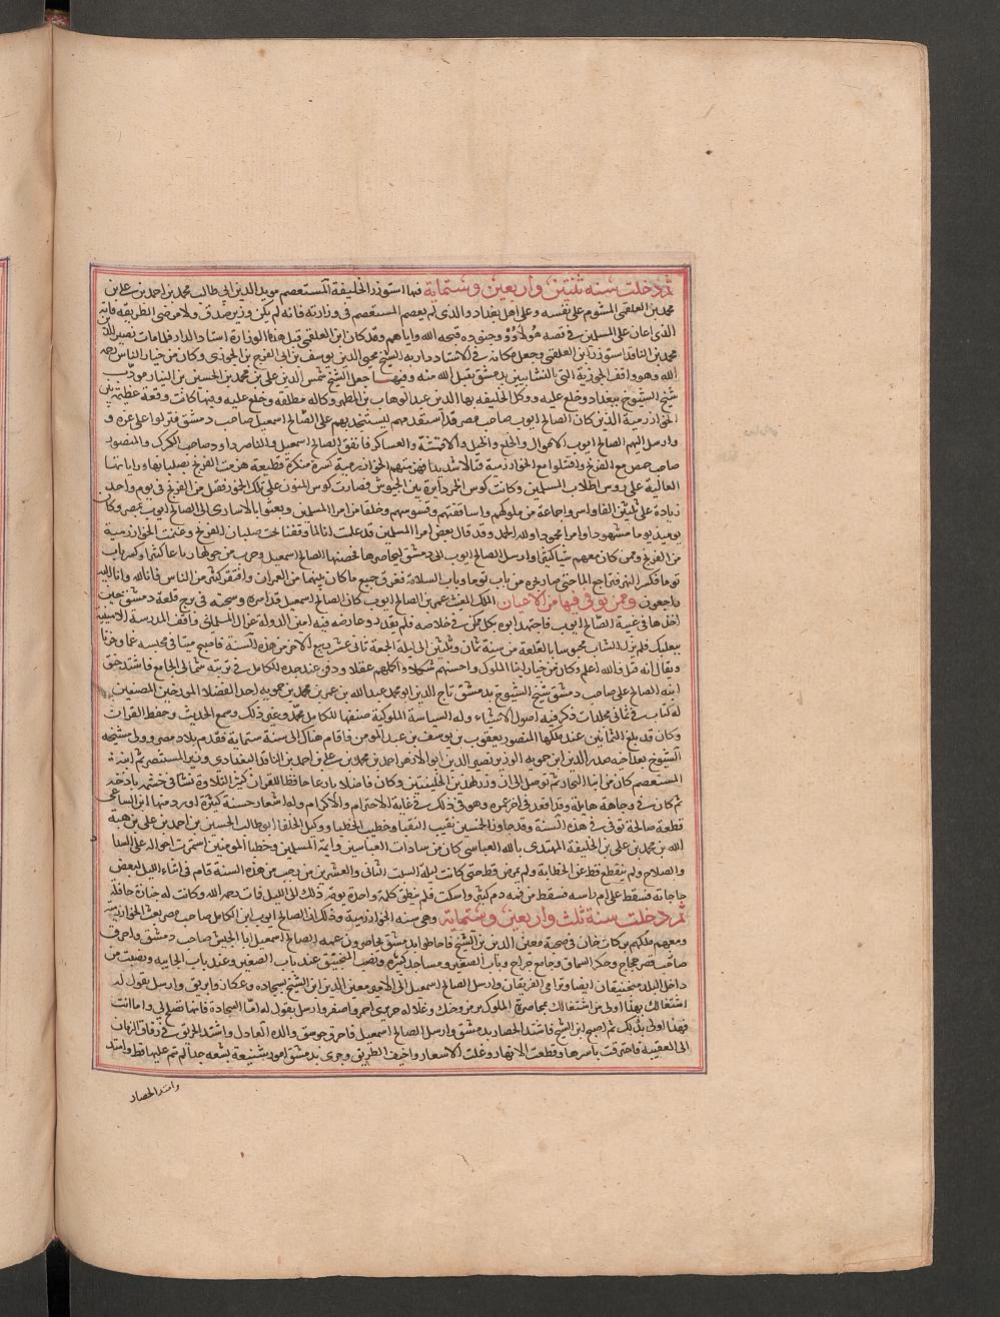 ثم دخلت سنة ثنتين واربعين وستماية فيها استوزر الخليفة المستعصم مويد الدين ابي طالب محمد بن احمد بن علي بن
محمد بن العلقمي المشوم على نفسه وعلى اهل بغداد والذي لم يعصم المستعصم في وزارته فانه لم يكن وزير صدق ولا مرضي الطريقه فانه
الذي اعان على المسلمين في قصه هولاوو وجنوده قبحه الله واياهم وقد كان ابن العلقمي قبل هذه الوزارة استاد الدار فلما مات نصير الدين
محمد بن الناقد استوزر ابن العلقمي وجعل مكانه في الاستاد داريه الشيخ محيي الدين يوسف بن ابي الفرج بن الجوزي وكان من خيار الناس رحمه
الله وهو واقف الجوزية التي بالنشابين بدمشق تقبل الله منه وفيها جعل الشيخ شمس الدين علي بن محمد بن الحسين بن النيار مودب
شيخ الشيوخ ببغداد وخلع عليه ووكل الخليفه بها الدين عبد الوهاب بن المطهر وكاله مطلقه وخلع عليه وفيها كانت وقعة عظيمة بين
الخوارزمية الذين كان الصالح ايوب صاحب مصر قد استقدمهم ليستنجد بهم على الصالح اسمعيل صاحب دمشق فنزلوا على غزه و
وارسل اليهم الصالح ايوب الاموال والخلع والخيل والاقمشة والعساكر فاتفق الصالح اسمعيل والناصر داود صاحب الكرك والمنصور
صاحب حمص مع الفرنج واقتتلوا مع الخوارزمية قتالا شديدا فهزمتهم الخوارزمية كسرة منكرة فظيعة هزمت الفرنج بصلبانها وراياتها
العالية على روس اطلاب المسلمين وكانت كوس الخمر دايرة بين الجيوش فصارت كوس المنون على تلك الخمور فقتل من الفرنج في يوم واحد
زيادة على ثلثين الفا واسروا جماعة من ملوكهم واساقفتهم وقسوسهم وخلقا من امرا المسلمين وبعثوا بالاسارى الى الصالح ايوب بمصر وكان
يوميد يوما مشهودا وامرا محمودا ولله الحمد وقد قال بعض امرا المسلمين قد علمت انا لما وقفنا تحت صلبان الفرنج وغنمت الخوارزمية
من الفرنج ومن كان معهم شيا كثيرا وارسل الصالح ايوب الى دمشق ليحاصرها فحصنها الصالح اسمعيل وخرب من حولها رباعا كثيرة وكسر باب
توما فكسر النهر فتراجع الما حتى صار بحره من باب توما وباب السلامة فغرق جميع ما كان بينهما من العمران وافتقر كثير من الناس فانا لله وانا اليه
راجعون وممن توفي فيها من الاعيان الملك المغيث عمر بن الصالح ايوب كان الصالح اسمعيل قد اسره وسجنه في برج قلعة دمشق حين
اخذها في غيبة الصالح ايوب فاجتهد ابوه بكل ممكن في خلاصه فلم يقدر وعارضه فيه امين الدولة غزال المسلماني واقف المدرسة الامينية
ببعلبك فلم يزل الشاب محبوسا بالقلعة من سنة ثمان وثلثين الى ليلة الجمعة ثاني عشر ربيع الاخر من هذه السنة فاصبح ميتا في محبسه غما وحزنا
ويقال انه قتل فالله اعلم وكان من خيار ابنا الملوك واحسنهم شكلا واكملهم عقلا ودفن عند جده الكامل في تربته شمالي الجامع فاشتد حنق
ابنه الصالح على صاحب دمشق شيخ الشيوخ بدمشق تاج الدين ابو محمد عبد الله بن عمر بن محمد بن حمويه احد الفضلا المورخين المصنفين
له كتاب في ثماني مجلدات ذكر فيه اصول الاشياء وله السياسة الملوكية صنفها للكامل محمد وغير ذلك وسمع الحديث وحفظ القران
وكان قد بلغ الثمانين عند ملكها المنصور يعقوب بن يوسف بن عبد المومن فاقام هناك الى سنة ستماية فقدم بلاد مصر وولى مشيخه
الشيوخ بعد اخيه صدر الدين ابن حمويه الوزير نصير الدين ابو الازهر احمد بن محمد بن علي بن احمد بن الناقد البغدادي وزير المستنصر ثم ابنه
المستعصم كان من ابنا التجار ثم توصل الى ان وزر لهذين الخليفتين وكان فاضلا بارعا حافظا للقران كثير التلاوة نشا في حشمه باذخه
ثم كان في وجاهة هايلة وقد اقعد في اخر عمره وهو في ذلك في غاية الاحترام والاكرام وله اشعار حسنة كثيرة اورد منها ابن الساعي
قطعة صالحة توفي في هذه السنة وقد جاوز الخمسين نقيب النقبا وخطيب الخطبا ووكيل الخلفا ابو طالب الحسين بن احمد بن علي بن هبة
الله بن محمد بن علي بن الخليفة المهتدي بالله العباسي كان من سادات العباسين وايمة المسلمين وخطبا المومنين استمرت احواله على السدا
والصلاح ولم ينقطع قط عن الخطابة ولم يمرض قط حتى كانت ليلة السبت الثاني والعشرين من رجب من هذه السنة قام في اثناء الليل لبعض
حاجاته فسقط على ام راسه فسقط من فمه دم كثير واسكت فلم ينطق كلمة واحدة يومه ذلك الى الليل فمات رحمه الله وكانت له جنازة حافلة
ثم دخلت سنة ثلث واربعين وستماية وهي سنه الخوارزمية وذلك ان الصالح ايوب ابن الكامل صاحب مصر بعث الخوارزمية
ومعهم ملكهم بركات خان في صحبة معين الدين بن الشيخ فاحاطوا بدمشق يحاصرون عمه الصالح اسمعيل ابا الجيش صاحب دمشق واحرق
صاحب قصر حجاج وحكر السماق وجامع جراح وباب الصغير ومساجد كثيره ونصب المنجنيق عند باب الصغير وعند باب الجابيه ونصبت من
داخل البلد منجنيقان ايضا وترامى الفريقان وارسل الصالح اسمعيل الى الامير معين الدين ابن الشيخ بسجاده وعكاز وابريق وارسل يقول له
اشتغالك بهذا اولى من اشتغالك بمحاصرة الملوك بزمر وجنك وغلاله حرير احمر واصفر وارسل يقول له اما السجادة فانها تصلح لي واما انت
فهذا اولى بك ثم اصبح ابن الشيخ فاشتد الحصار بدمشق وارسل الصالح اسمعيل فاحرق جوسق والده العادل واشتد الحريق في زقاق الرمان
الى العقيبة فاحترقت باسرها وقطعت الانهار وغلت الاسعار واخيف الطريق وجرى بدمشق امور بشيعة بشعه جدا لم تتم عليها قط وامتد
وامتد الحصار